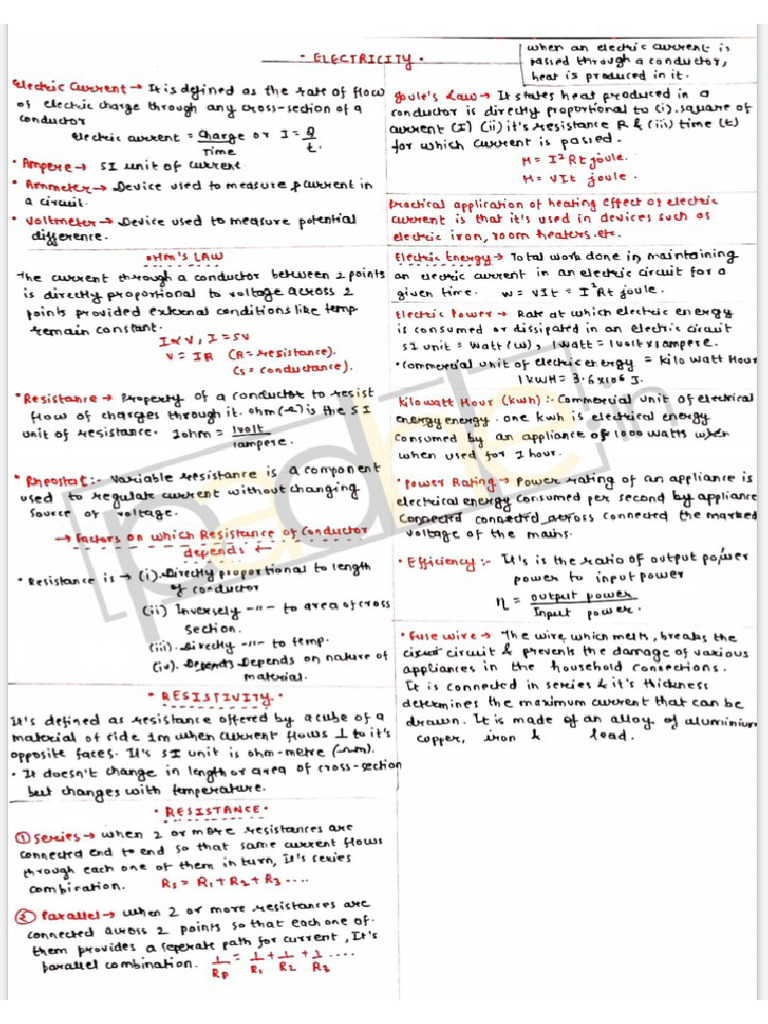 • ELECTRICITY •
Electric Current → It is defined as the rate of flow
of electric charge through any cross-section of a
conductor
Electric current = Charge / Time or I = Q / t.
• Ampere → SI unit of current
• Ammeter → Device used to measure current in
a circuit.
• Voltmeter → Device used to measure potential
difference.
• OHM'S LAW
The current through a conductor between 2 points
is directly proportional to voltage across 2
points provided external conditions like temp.
remain constant.
I ∝ V, I = SV
V = IR (R = resistance).
(S = conductance).
• Resistance → Property of a conductor to resist
flow of charges through it. ohm (Ω) is the SI
unit of resistance. 1 ohm = 1 volt / 1 ampere.
• Rheostat :- Variable resistance is a component
used to regulate current without changing
source of voltage.
→ Factors on which Resistance of Conductor
depends ←
• Resistance is → (i). Directly proportional to length
of conductor
(ii) Inversely -"- to area of cross
section.
(iii). Directly -"- to temp.
(iv). Depends Depends on nature of
material.
• RESISTIVITY •
It's defined as resistance offered by a cube of a
material of side 1m when current flows ⊥ to it's
opposite faces. It's SI unit is ohm-metre (Ωm).
• It doesn't change in length or area of cross-section
but changes with temperature.
• RESISTANCE •
① Series → when 2 or more resistances are
connected end to end so that same current flows
through each one of them in turn, It's series
combination. Rs = R1 + R2 + R3 ....
② Parallel → when 2 or more resistances are
connected across 2 points so that each one of
them provides a seperate path for current, It's
parallel combination. 1/Rp = 1/R1 + 1/R2 + 1/R3 ....
when an electric current is
passed through a conductor,
heat is produced in it.
Joule's Law → It states heat produced in a
conductor is directly proportional to (i). square of
current (I) (ii) it's resistance R & (iii) time (t)
for which current is passed.
H = I²Rt joule.
H = VIt joule.
Practical application of heating effect of electric
current is that it's used in devices such as
electric iron, room heaters.etc.
Electric Energy → Total work done in maintaining
an electric current in an electric circuit for a
given time. W = VIt = I²Rt joule.
Electric Power → Rate at which electric energy
is consumed or dissipated in an electric circuit
SI unit = Watt (W), 1 Watt = 1 volt x 1 ampere.
• Commercial unit of electric energy = kilo Watt Hour
1 KWH = 3.6x10⁶ J.
Kilowatt Hour (kwh) :- Commercial unit of electrical
energy energy. one kwh is electrical energy
consumed by an appliance of 1000 watts when
when used for 1 hour.
• Power Rating → Power rating of an appliance is
electrical energy consumed per second by appliance
connected connected across connected the marked
voltage of the mains.
• Efficiency :- It's is the ratio of output power
power to input power
η = output power / Input power.
• Fuse wire → The wire, which melts, breaks the
circuit & prevents the damage of various
appliances in the household connections.
It is connected in series & it's thickness
determines the maximum current that can be
drawn. It is made of an alloy of aluminium
copper, iron & lead.
padhle.in